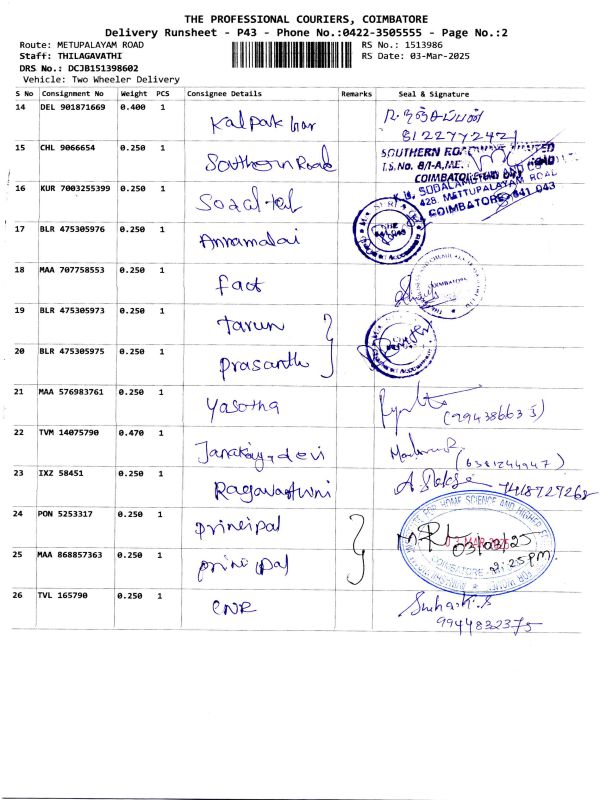 THE PROFESSIONAL COURIERS, COIMBATORE
Delivery Runsheet - P43 - Phone No.:0422-3505555 - Page No.:2
Route: METUPALAYAM ROAD
RS No.: 1513986
Staff: THILAGAVATHI
RS Date: 03-Mar-2025
DRS No.: DCJB151398602
Vehicle: Two Wheeler Delivery
S No Consignment No Weight PCS Consignee Details Remarks Seal & Signature
14 DEL 901871669 0.400 1 Kalpak bar
8122772421
15 CHL 9066654 0.250 1 Southern Road
SOUTHERN ROADWAYS LIMITED
COIMBATORE
16 KUR 7003255399 0.250 1
428, METTUPALAYAM ROAD
COIMBATORE-641 043
17 BLR 475305976 0.250 1 Annamalai
18 MAA 707758553 0.250 1 Fact
COIMBATORE
19 BLR 475305973 0.250 1 Tarun
20 BLR 475305975 0.250 1 Prasanth
21 MAA 576983761 0.250 1 Yasotha
22 TVM 14075790 0.470 1
(6381244947)
23 IXZ 58451 0.250 1
7418727268
24 PON 5253317 0.250 1 principal
FOR HOME SCIENCE AND HIGHER
03 MAR 2025
03/03/25
COIMBATORE
2:25pm
25 MAA 868857363 0.250 1 principal
26 TVL 165790 0.250 1 CNR
9944832375